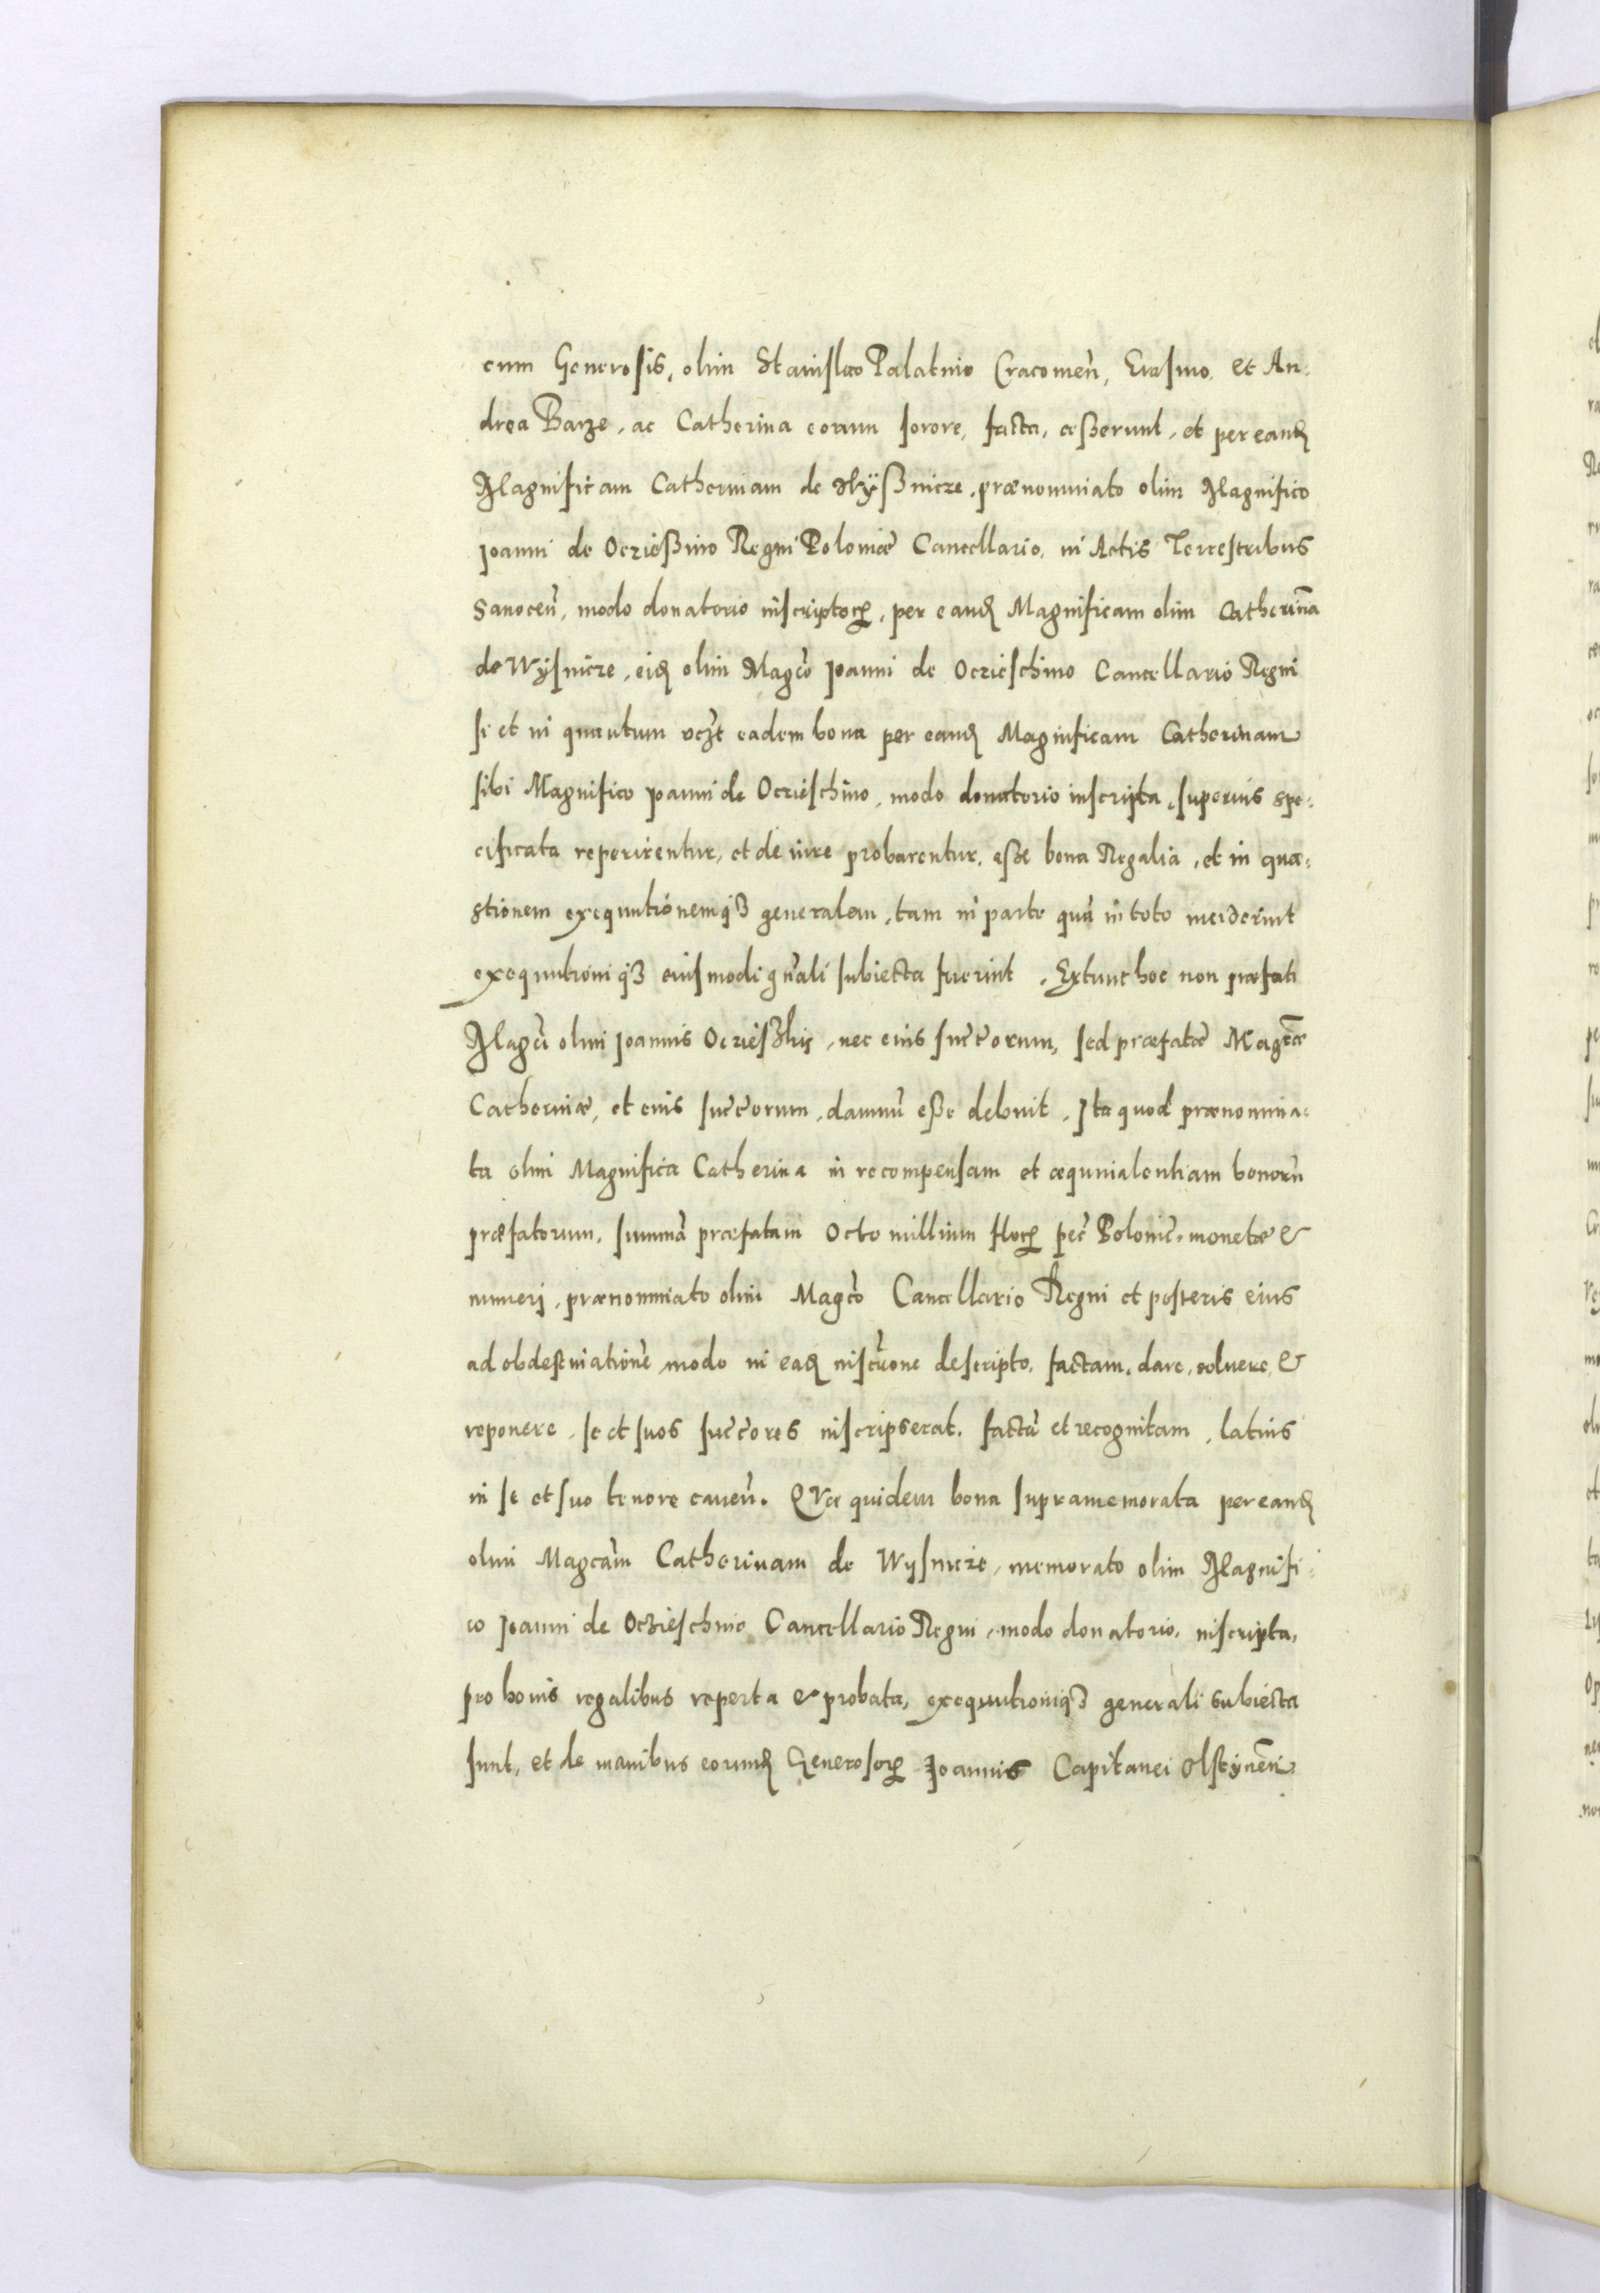 cum Generosis, olim Stanislao Palatino Cracouien̄, Erasmo, et An:
drea Barze, ac Catherina eorum sorore, facta, cesserunt, et per eand̄
Magnificam Catherinam de Wÿßnicze, prænominato olim Magnifico
Joanni de Oczießino Regni Poloniæ Cancellario, in Actis Terrestribus
Sanocen̄, modo donatorio inscriptoꝝ, per eand̄ Magnificam olim Catherinā
de Wysnicze, eid̄ olim Magco Joanni de Oczieschino Cancellario Regni
si et in quantum vczt eadem bona per eand̄ Magnificam Catherinam
sibi Magnifico Joanni de Oczieschino, modo donatorio inscripta, superius spe:
cificata reperirentur, et de iure probarentur, esse bona Regalia, et in quæ:
stionem exequutionemqꝫ generalem, tam in parte quā in toto inciderint
exequutioniqꝫ eiusmodi gn̄ali subiecta fuerint, Extunc hoc non præfati
Magci olim Joannis Oczießkij, nec eius succ̄orum, sed præfatæ Magcæ
Catherinæ, et eius succ̄orum, damnū esse debuit, Ita quod prænomina:
ta olim Magnifica Catherina in recompensam et æquiualentiam bonorū
præfatorum, summā præfatam Octo millium floꝝ pec̄ Polonic̄, monetæ &
numeri, prænominato olim Magco Cancellario Regni et posteris eius
ad obdestinationē modo in ead̄ inscrīone descripto, factam, dare, soluere, &
reponere, se et suos succ̄ores inscripserat, factā et recognitam, latius
in se et suo tenore cauen̄. QVæ quidem bona supramemorata per eand̄
olim Magcam Catherinam de Wysnicze, memorato olim Magnifi:
co Joanni de Oczieschino Cancellario Regni, modo donatorio, inscripta,
pro bonis regalibus reperta & probata, exequutioniqꝫ generali subiecta
sunt, et de manibus eorund̄ Generosoꝝ Joannis Capitanei Olstinen̄